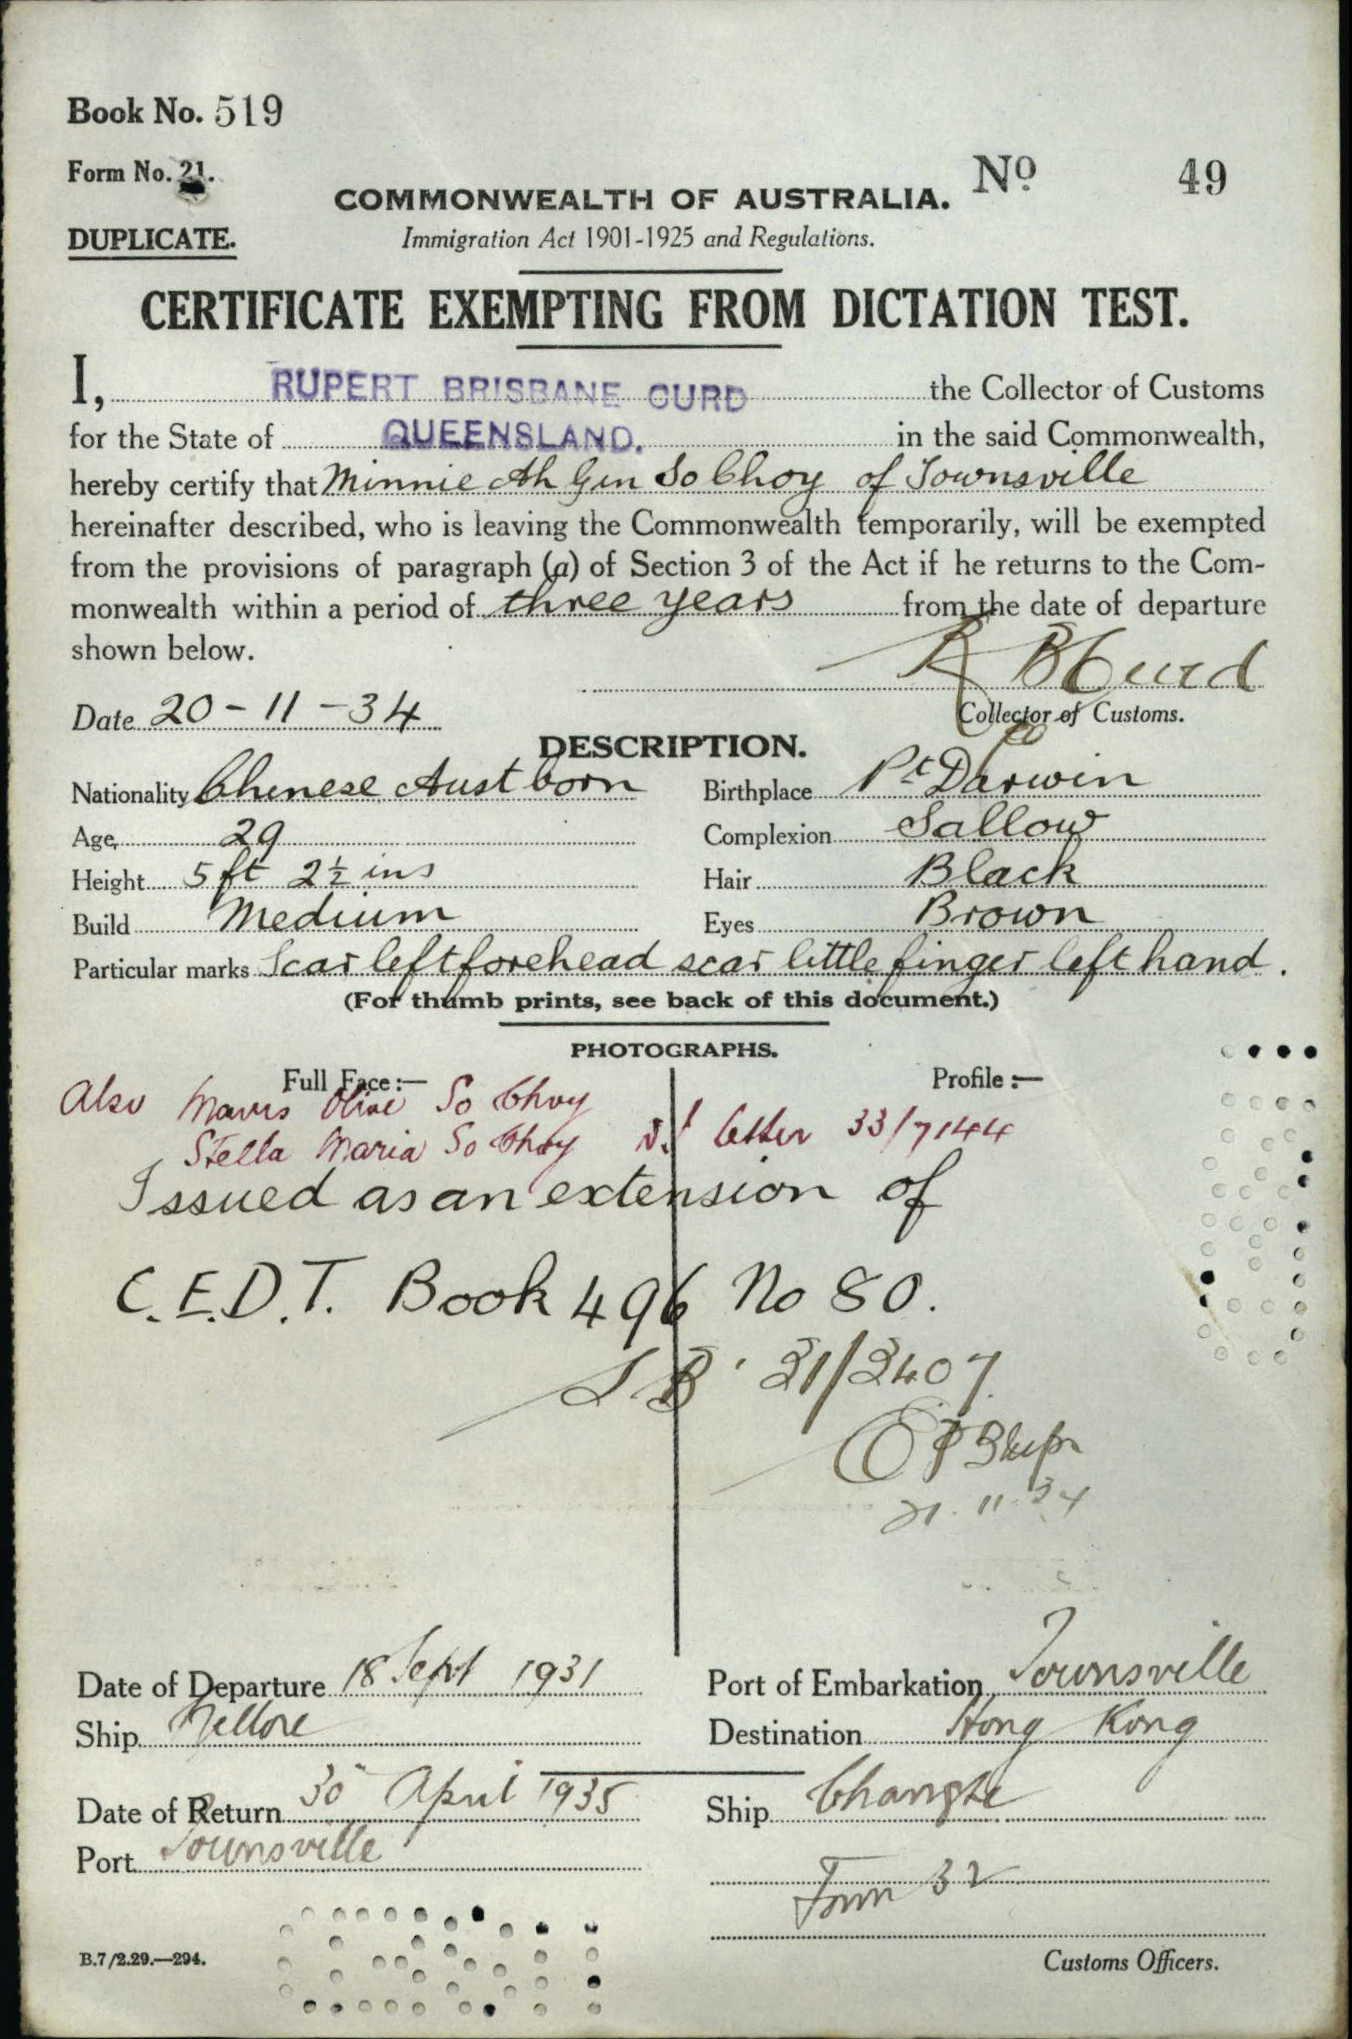 Book No. 519
Form No. 21.
COMMONWEALTH OF AUSTRALIA. No 49
DUPLICATE.
Immigration Act 1901-1925 and Regulations.
CERTIFICATE EXEMPTING FROM DICTATION TEST.
I, RUPERT BRISBANE CURD the Collector of Customs
for the State of QUEENSLAND. in the said Commonwealth,
hereby certify that Minnie Ah Gin So Choy of Townsville
hereinafter described, who is leaving the Commonwealth temporarily, will be exempted
from the provisions of paragraph (a) of Section 3 of the Act if he returns to the Com-
monwealth within a period of three years from the date of departure
shown below.
R B Curd
Date 20-11-34 Collector of Customs.
DESCRIPTION.
Nationality Chinese Aust born Birthplace Pt Darwin
Age 29 Complexion Sallow
Height 5 ft 2½ ins Hair Black
Build Medium Eyes Brown
Particular marks Scar left forehead scar little finger left hand.
(For thumb prints, see back of this document.)
PHOTOGRAPHS.
Full Face:— Profile:—
Also Mavis Olive So Choy
Stella Maria So Choy letter 33/7144
Issued as an extension of
C.E.D.T. Book 496 No 80.
31/2407
21.11.34
Date of Departure 18 Sept 1931 Port of Embarkation Townsville
Ship Nellore Destination Hong Kong
Date of Return 30 April 1935 Ship Changte
Port Townsville
Form 32
B.7/2.29.—294. Customs Officers.